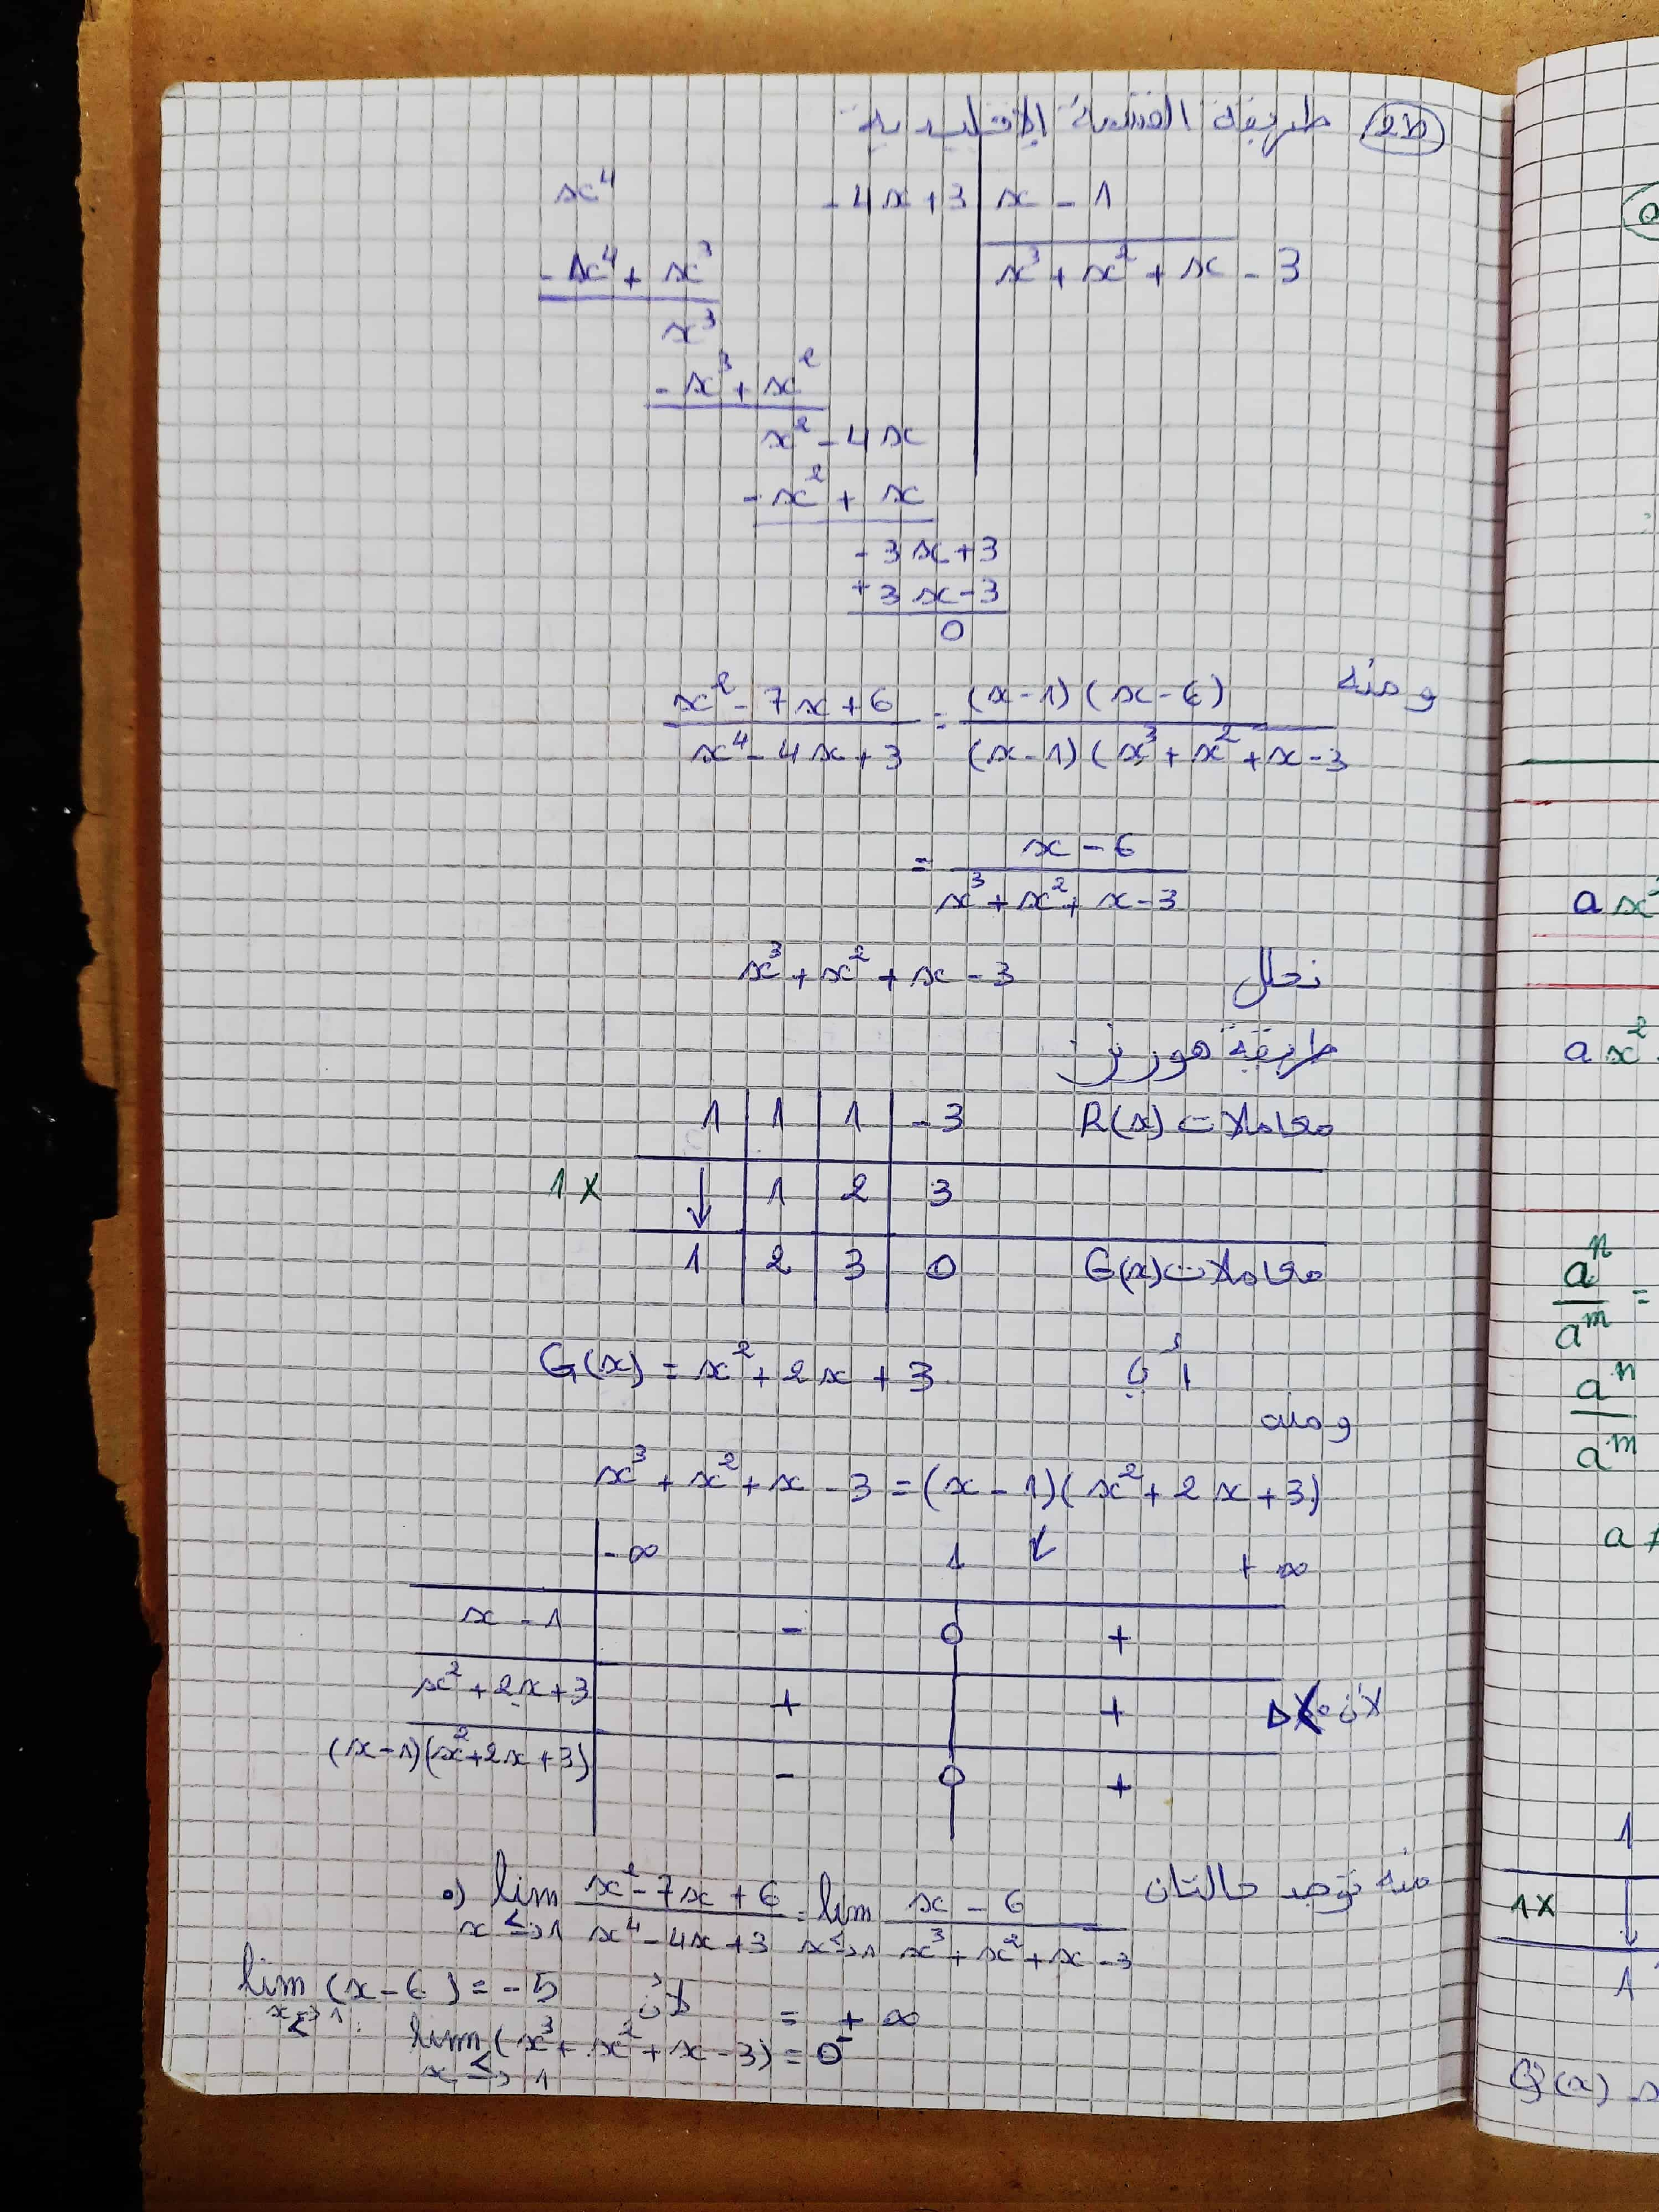 ط2 طريقة القسمة الإقليدية
x⁴ - 4x + 3 | x - 1
- x⁴ + x³ | x³ + x² + x - 3
x³
- x³ + x²
x² - 4x
- x² + x
- 3x + 3
+ 3x - 3
0
ومنه
(x² - 7x + 6)/(x⁴ - 4x + 3) = (x-1)(x-6)/(x-1)(x³ + x² + x - 3
= (x - 6)/(x³ + x² + x - 3)
نحلل x³ + x² + x - 3
طريقة هورنر
1 | 1 | 1 | -3 معاملات R(x)
1 × ↓ | 1 | 2 | 3
1 | 2 | 3 | 0 معاملات G(x)
أي G(x) = x² + 2x + 3
ومنه
x³ + x² + x - 3 = (x - 1)(x² + 2x + 3)
-∞ 1 ↙ +∞
x - 1 | - 0 +
x² + 2x + 3 | + | + لأن Δ<0
(x-1)(x²+2x+3) | - 0 +
منه توجد حالتان
•) lim x→<1 (x² - 7x + 6)/(x⁴ - 4x + 3) = lim x→<1 (x - 6)/(x³ + x² + x - 3)
= +∞
لأن lim x→<1 (x - 6) = -5
lim x→<1 (x³ + x² + x - 3) = 0⁻
a x³
a x²
aⁿ/aᵐ =
aⁿ/aᵐ
a ≠
1
1× ↓
1
Q(x)